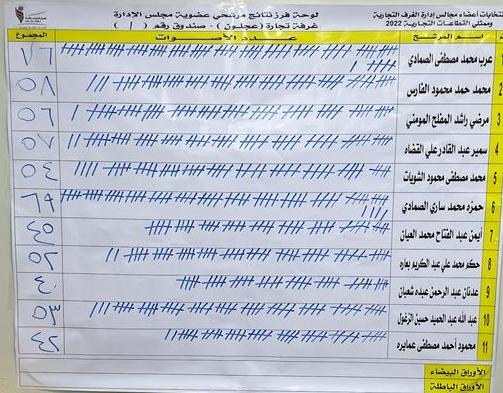 انتخابات أعضاء مجالس إدارة الغرف التجارية
وممثلي القطاعات التجارية 2022
لوحة فرز نتائج مرشحي عضوية مجلس الإدارة
غرفة تجارة (عجلون) - صندوق رقم ( )
اسم المرشح عدد الأصوات المجموع
1 عرب محمد مصطفى الصمادي ٧٦
2 محمد حمد محمود الفارس ٥٨
3 مرضي راشد المفلح المومني ٥٦
4 سمير عبد القادر علي القضاه ٥٧
5 محمد مصطفى محمود الشويات ٥٤
6 حمزه محمد ساري الصمادي ٦٩
7 أيمن عبد الفتاح محمد العيان ٤٥
8 حكم محمد علي عبد الكريم بعاره ٥٢
9 عدنان عبد الرحمن عبده شعبان ٤٠
10 عبد الله عبد الحميد حسين الزغول ٥٣
11 محمود أحمد مصطفى عمايره ٤٢
الأوراق البيضاء
الأوراق الباطلة